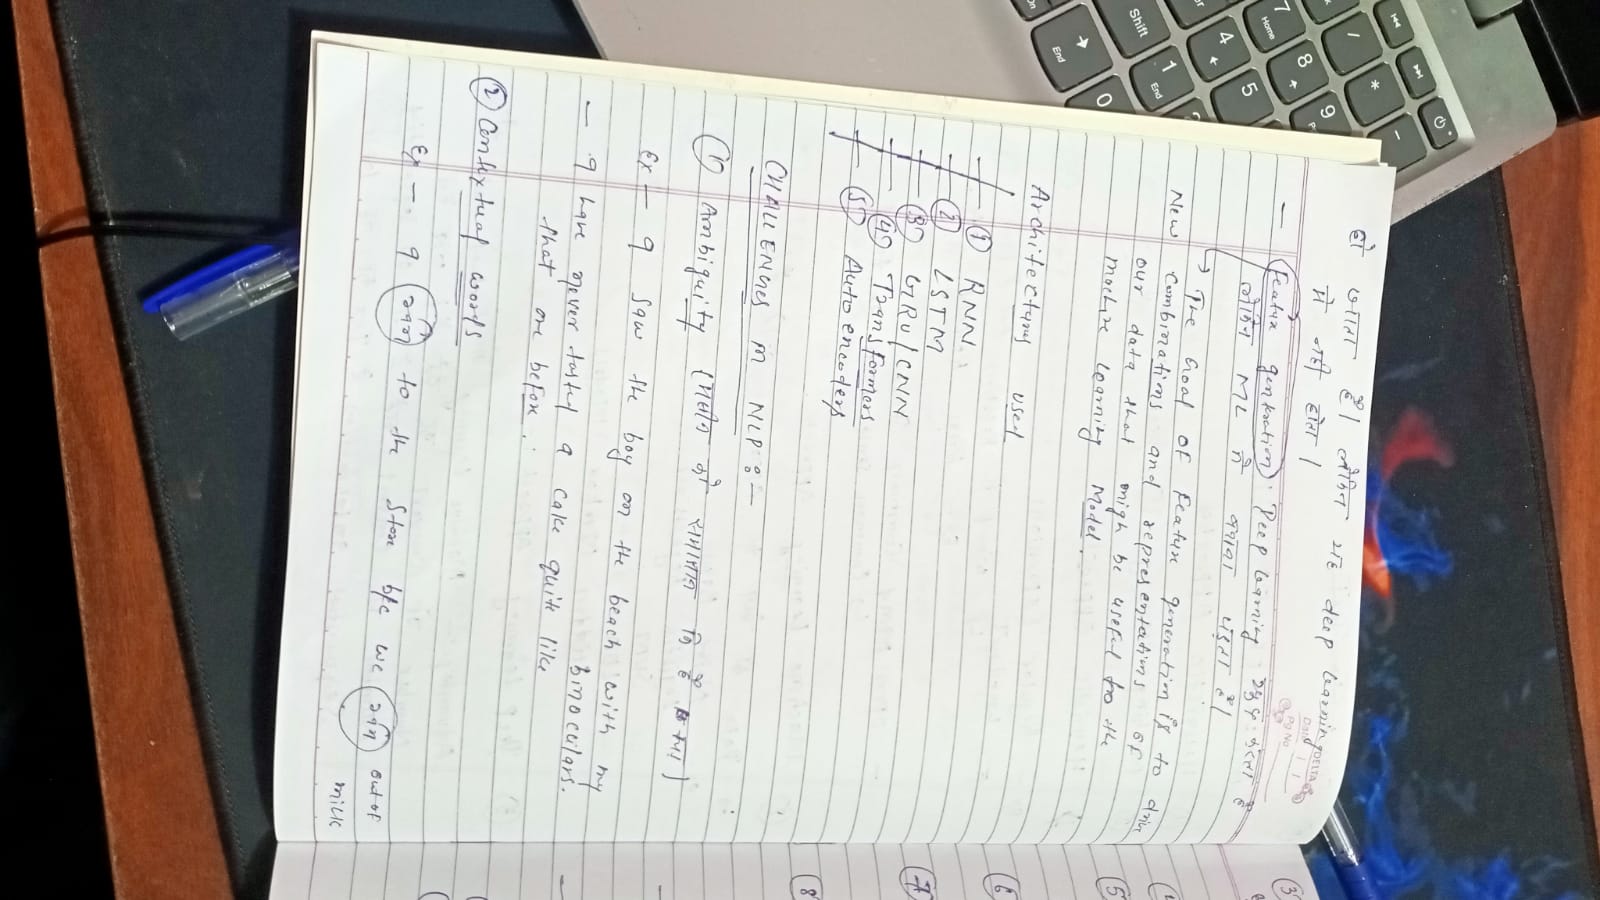 हो जाता है। लेकिन यह deep learning
में नहीं होता।
DELTA
Pg No.
Date
— Feature genration. Deep learning खुद करता है
लेकिन ML में बनाना पड़ता है।
New → The Goal of Feature generation is to drive
combinations and representations of
our data that migh be useful to the
machine learning Model.
Architectures used
① RNN
② LSTM
③ GRU/CNN
④ Transformers
⑤ Auto encoders
CHALLENGES in NLP :-
① Ambiguity
Ex - I saw the boy on the beach with my
binocculars.
— I have never tasted a cake quite like
that one before.
② Contextual words
Ex - I रन to the store b/c we रन out of
milk
③
④
⑤
⑥
⑦
⑧
Shift
End
1
End
0
4
5
7
Home
8
9
/
*
-